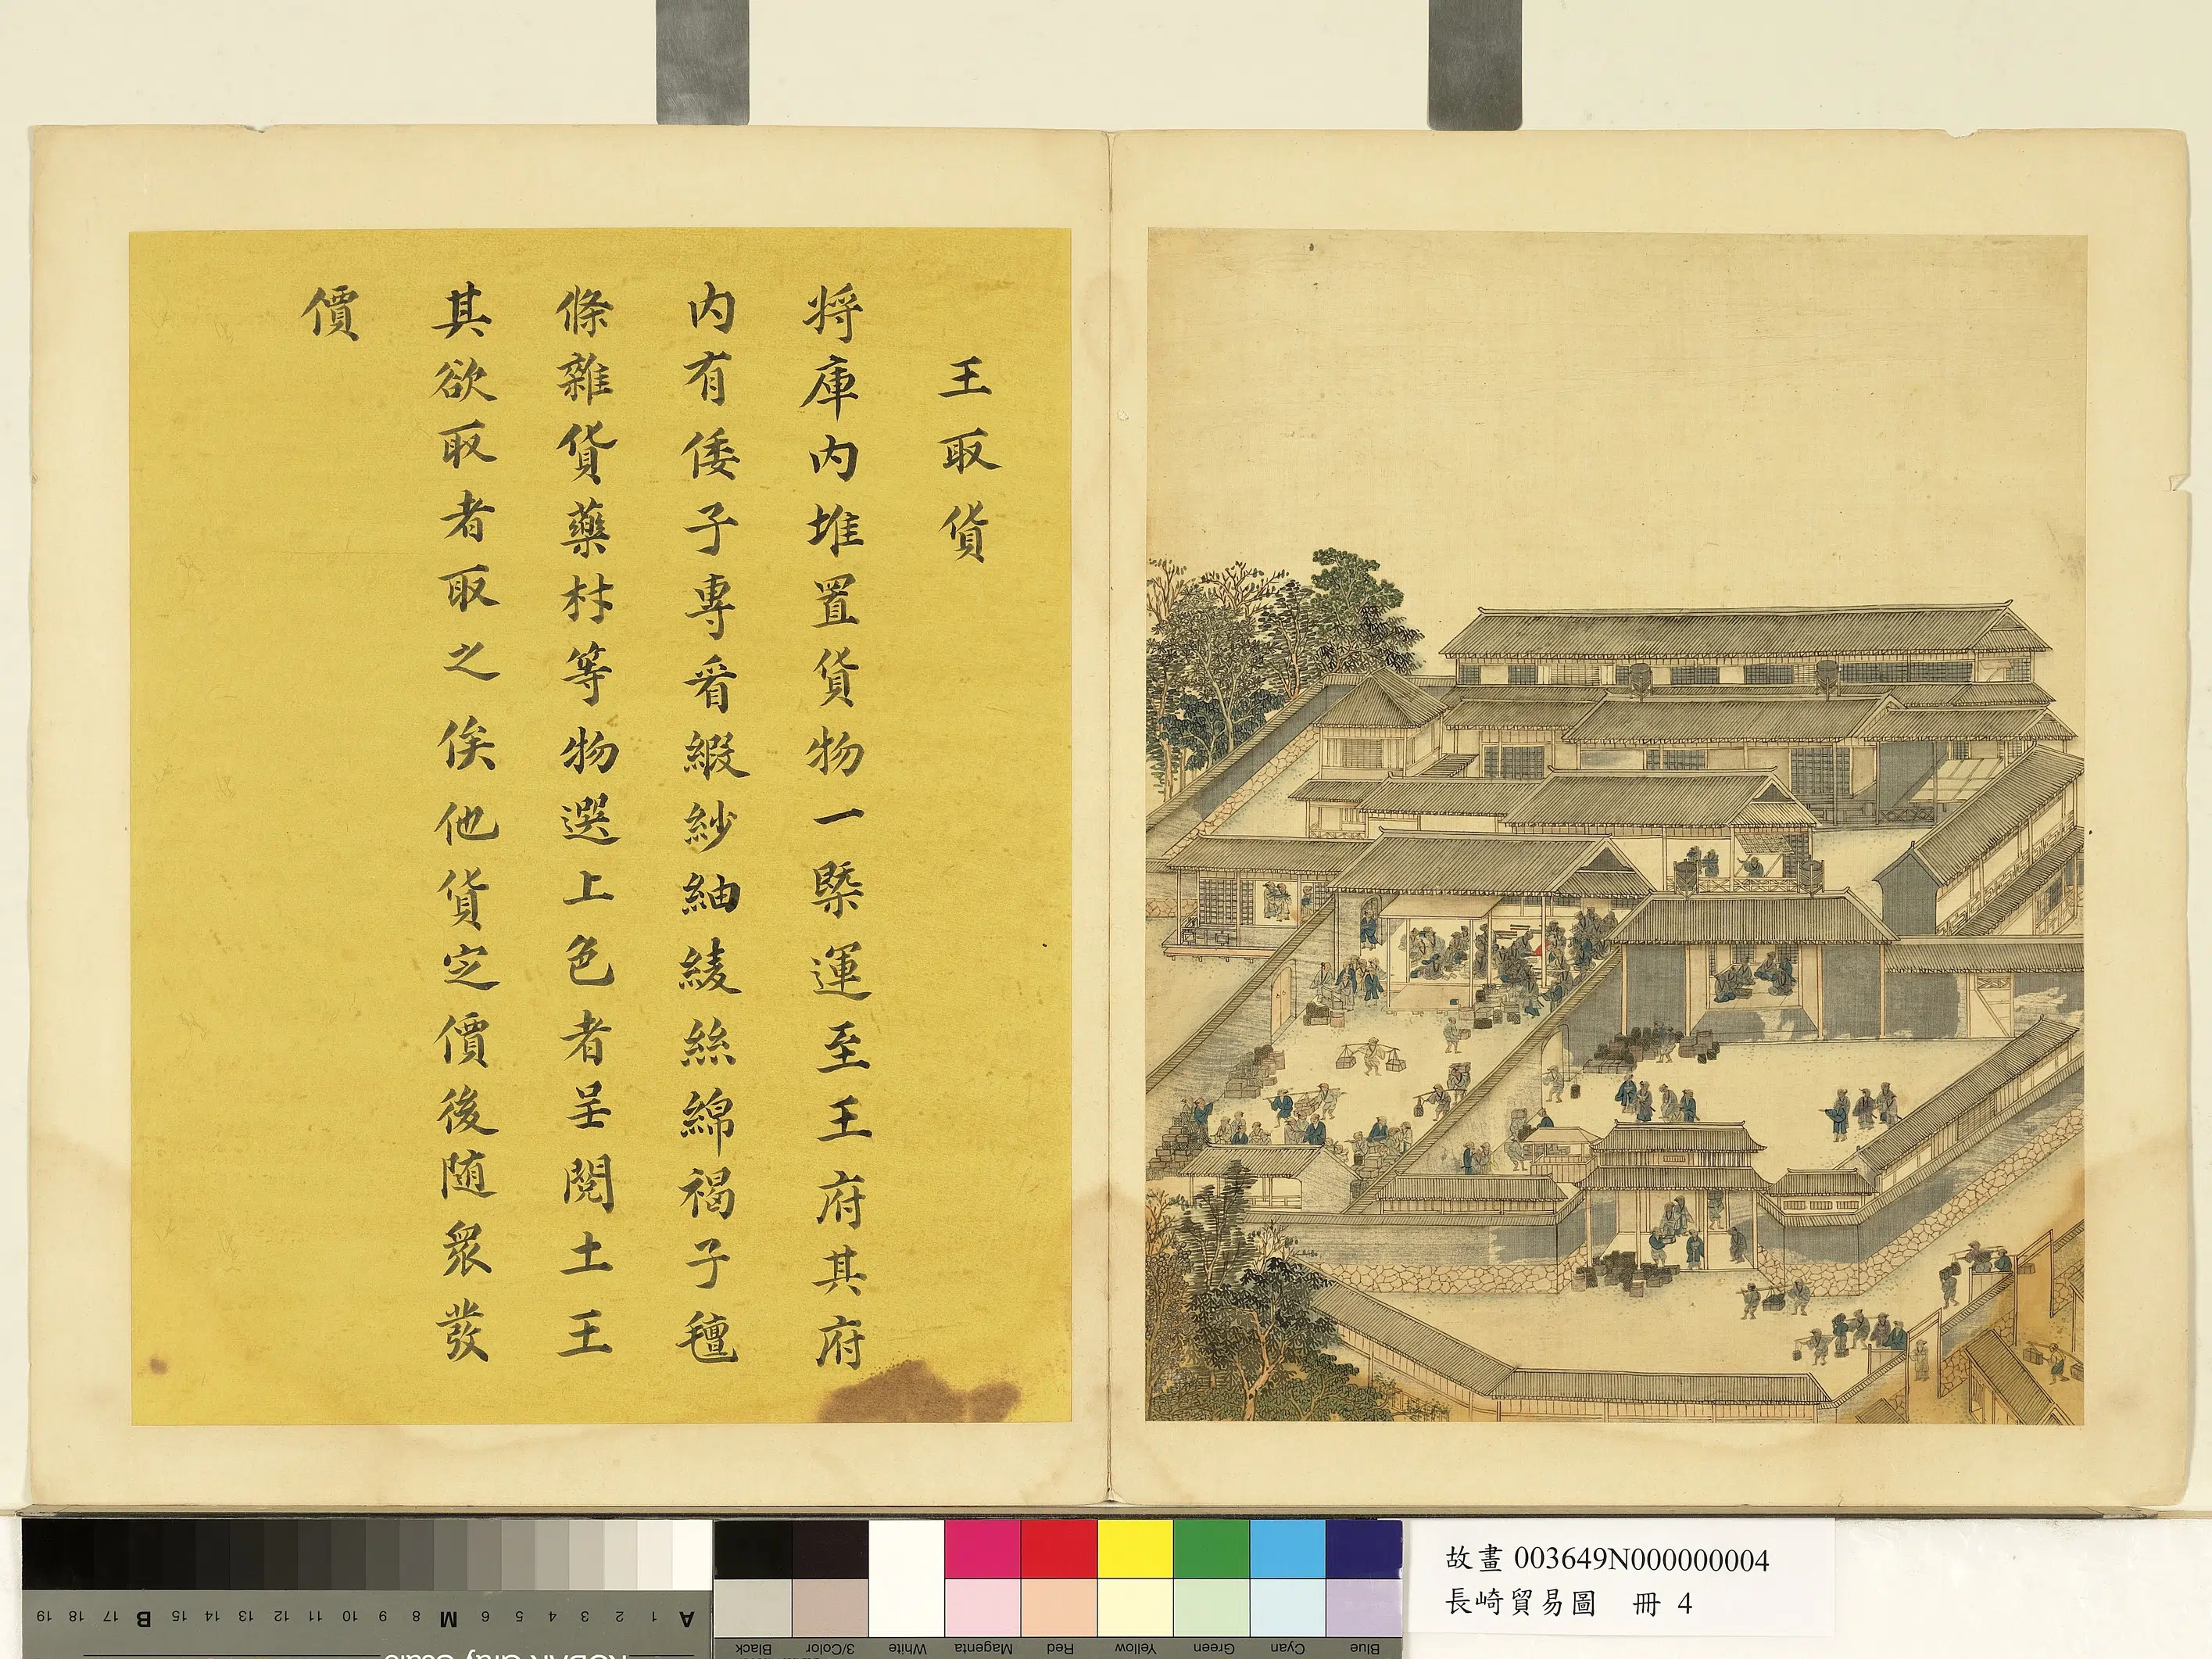 王取貨
将庫内堆置貨物一槩運至王府其府
内有倭子專看緞紗紬綾絲綿褐子氊
條雜貨藥材等物選上色者呈閱土王
其欲取者取之俟他貨定價後随衆發
價
故畫 003649N000000004
長崎貿易圖 冊 4
19 18 17 B 15 14 13 12 11 10 9 8 M 6 5 4 3 2 1 A
Black 3/Color White Magenta Red Yellow Green Cyan Blue